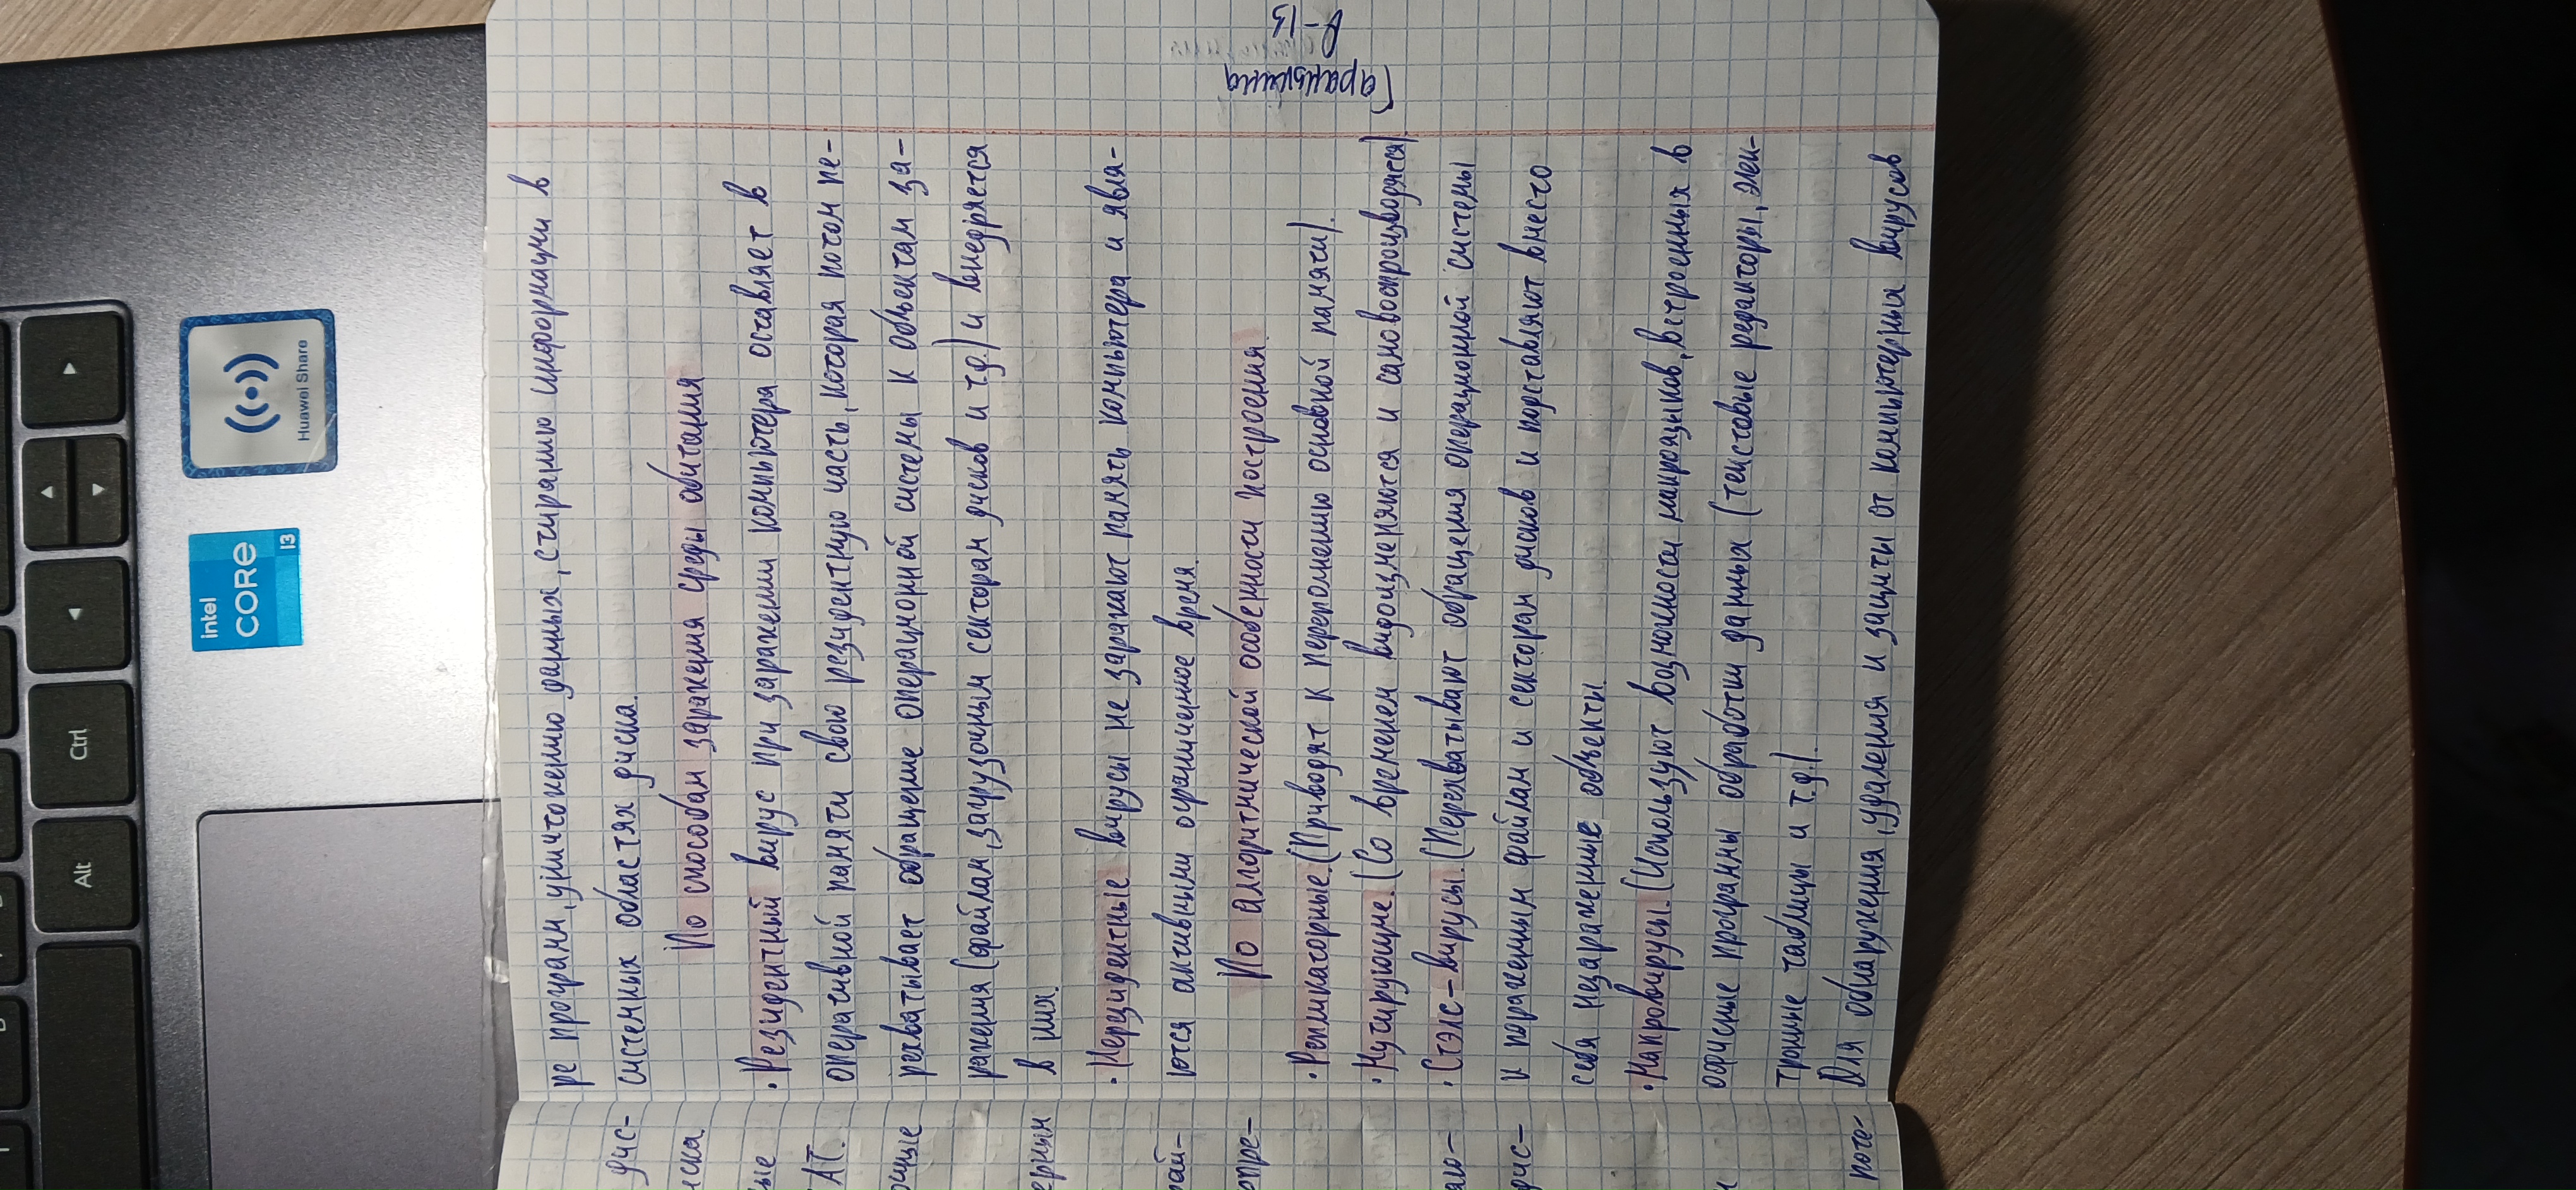 ре программ, уничтожению данных, стиранию информации в
системных областях диска.
По способам заражения среды обитания
• Резидентный вирус при заражении компьютера оставляет в
оперативной памяти свою резидентную часть, которая потом пе-
рехватывает обращение операционной системы к объектам за-
ражения (файлам, загрузочным секторам дисков и т.д.) и внедряется
в них.
• Нерезидентные вирусы не заражают память компьютера и явля-
ются активными ограниченное время.
По алгоритмической особенности построения
• Репликаторные. (Приводят к переполнению основной памяти).
• Мутирующие. (Со временем видоизменяются и самовоспроизводятся)
• Стэлс-вирусы. (Перехватывают обращения операционной системы
к пораженным файлам и секторам дисков и подставляют вместо
себя незараженные объекты.
• Макровирусы. (Используют возможности макроязыков, встроенных в
офисные программы обработки данных (текстовые редакторы, элек-
тронные таблицы и т.д.).
Для обнаружения, удаления и защиты от компьютерных вирусов
Гаранькина
Р-13
дис-
иска
ные
AT.
ющие
ерным
рай-
отре-
аю-
рис-
и
поте-
Huawei Share
intel
CORE
i3
Ctrl
Alt